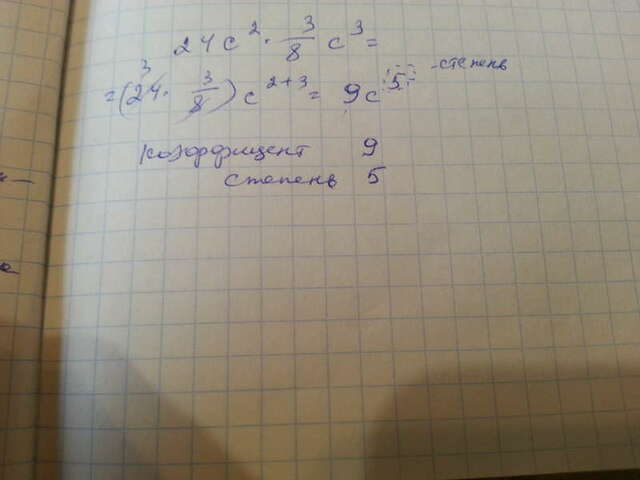 24c² · 3/8 c³ =
= (24 · 3/8) c²⁺³ = 9c⁵ - степень
3
коэффициент 9
степень 5